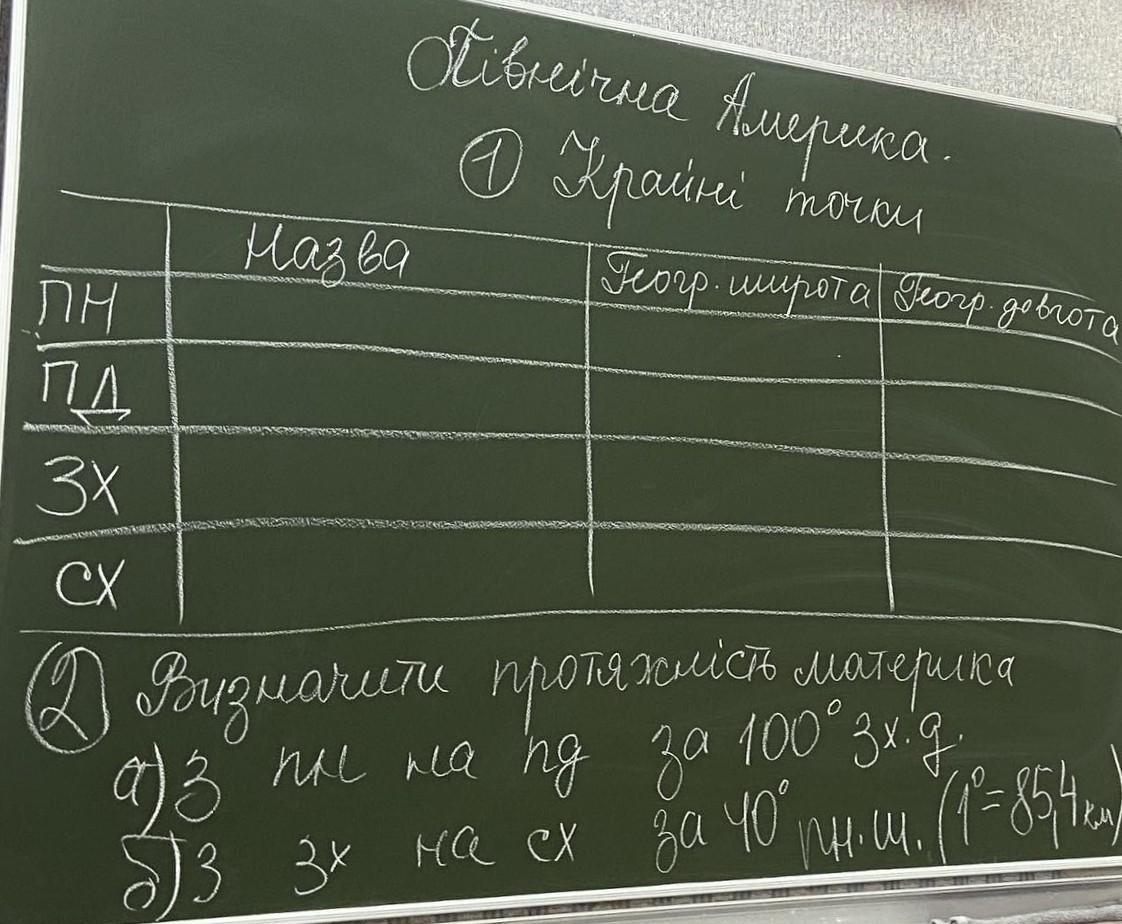 Північна Америка.
① Крайні точки
Назва Геогр. широта Геогр. довгота
ПН
ПД
Зх
СХ
② Визначити протяжність материка
а) З пн на пд за 100° Зх. д.
б) З Зх на сх за 40° пн. ш. (1°=85,4 км)